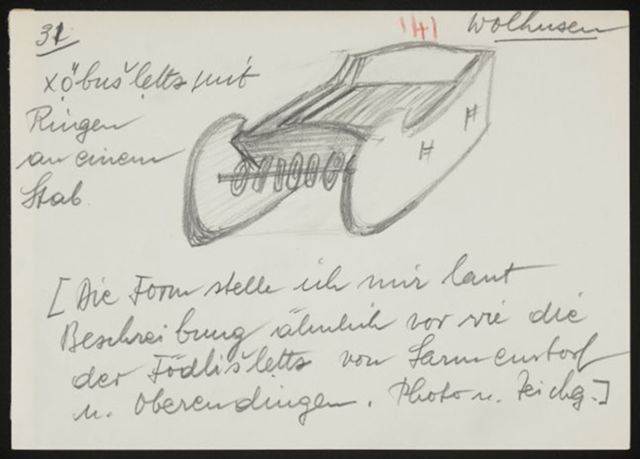 31
141
Wolhusen
xöbušletts mit
Ringen
an einem
Stab.
H H
[Die Form stelle ich mir laut
Beschreibung ähnlich vor wie die
der Födlišletts von Sarmenstorf
u. Oberendingen. Photo u. Zeichg.]